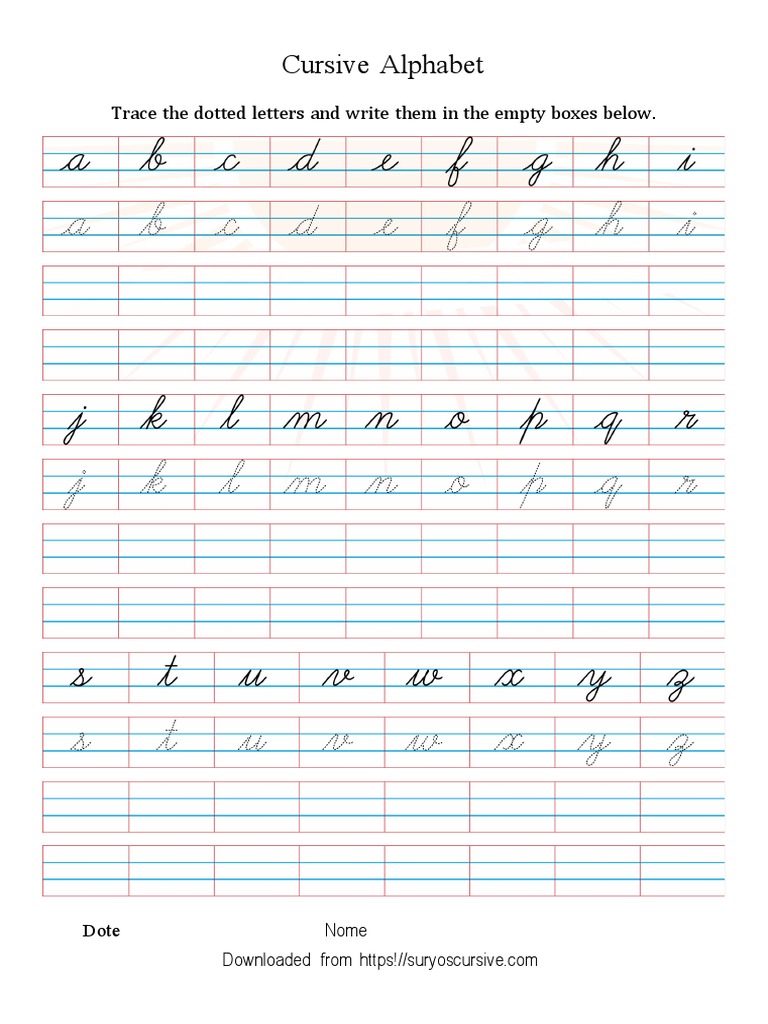 Cursive Alphabet
Trace the dotted letters and write them in the empty boxes below.
a b c d e f g h i
a b c d e f g h i
j k l m n o p q r
j k l m n o p q r
s t u v w x y z
s t u v w x y z
Dote Nome
Downloaded from https!//suryoscursive.com